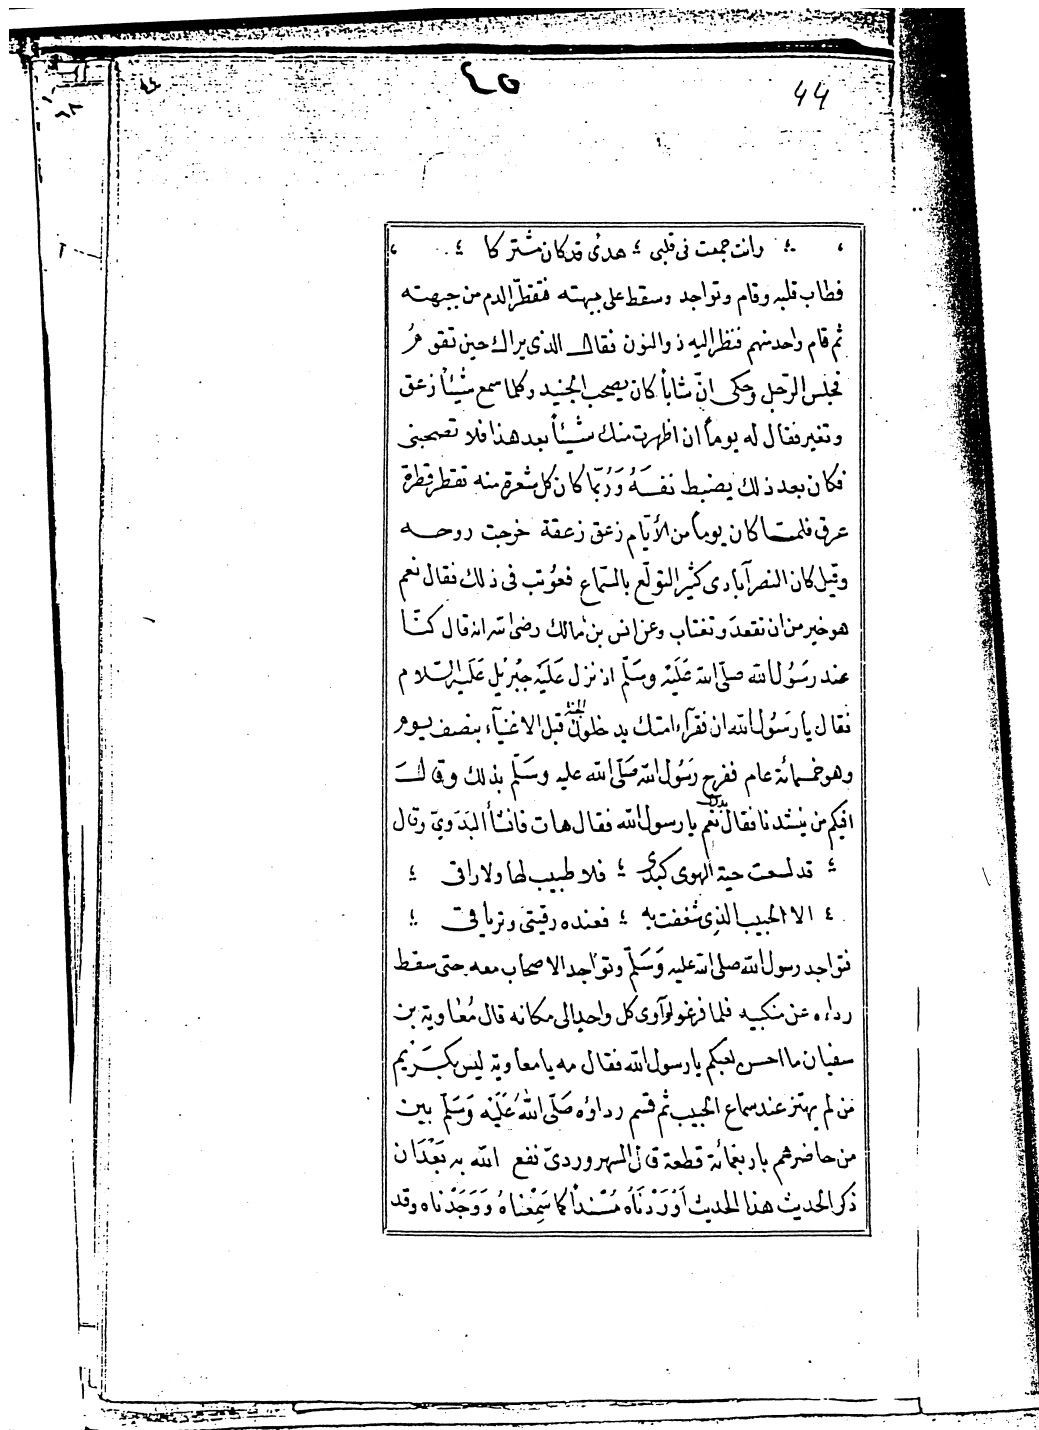 ٤٥
44
وانت جمعت فى قلبى ؛ هدى قد كان مشتركا ؛
فطاب قلبه وقام وتواجد وسقط على جبهته فتقطّر الدم من جبهته
ثم قام واحد منهم فنظر اليه ذو النون فقال الذى يراك حين تقوم
فجلس الرّجل وحكى انّ شابأ كان يصحب الجنيد وكلما سمع شيئاً زعق
وتغير فقال له يوماً ان اظهرت منك شيئاً بعد هذا فلا تصحبنى
فكان بعد ذلك يضبط نفسَهُ وَرُبّما كان كل شعرة منه تقطر قطرة
عرق فلمّا كان يوماً من الأيّام زعق زعقة خرجت روحه
وقيل كان النصرآبادى كثير التولّع بالسّماع فعوُتب فى ذلك فقال نعم
هو خير من ان نقعدَ ونغتاب وعن انس بن مالك رضى الله انه قال كنّا
عند رسَوُل الله صلّى الله عَلَيْه وسَلّم اذ نزل عَلَيْه جِبُريل عَليْه السّلام
فقال يا رسَوُل الله ان فقرآء امتك يدخلون الجنّة قبل الاغنيآء بنصف يوم
وهو خمسمائة عام ففرح رسَوُل الله صَلّى الله عليه وسَلّم بذلك وقالَ
افيكم من ينشدنا فقال بدوىّ نعم يا رسول الله فقال هات فانشأ البَدَويّ وقال
؛ قد لسعت حية الهوى كبدى ؛ فلا طبيب لها ولا راقى ؛
؛ الا الحبيب الذى شغفت به ؛ فعنده رقيتى وترياقى ؛
فتواجد رسول الله صلى الله عليه وَسَلّم وتواجد الاصحاب معه حتى سقط
رداءه عن منكبيه فلما فرغوا آوى كل واحد الى مكانه قال مُعاوية بن
سفيان ما احسن لعبكم يا رسول الله فقال مه يا معاوية ليس بكَريم
من لم يهتز عند سماع الحبيب ثم قسم رداؤه صَلّى اللهُ عَلَيْه وَسَلّم بين
من حاضرهم باربعمائة قطعة قال السهروردىّ نفع الله به بَعْدَ ان
ذكر الحديث هذا الحديث اَوْرَدْنَاهُ مُسْنداً كما سَمِعْناهُ وَوَجَدْناه وقد